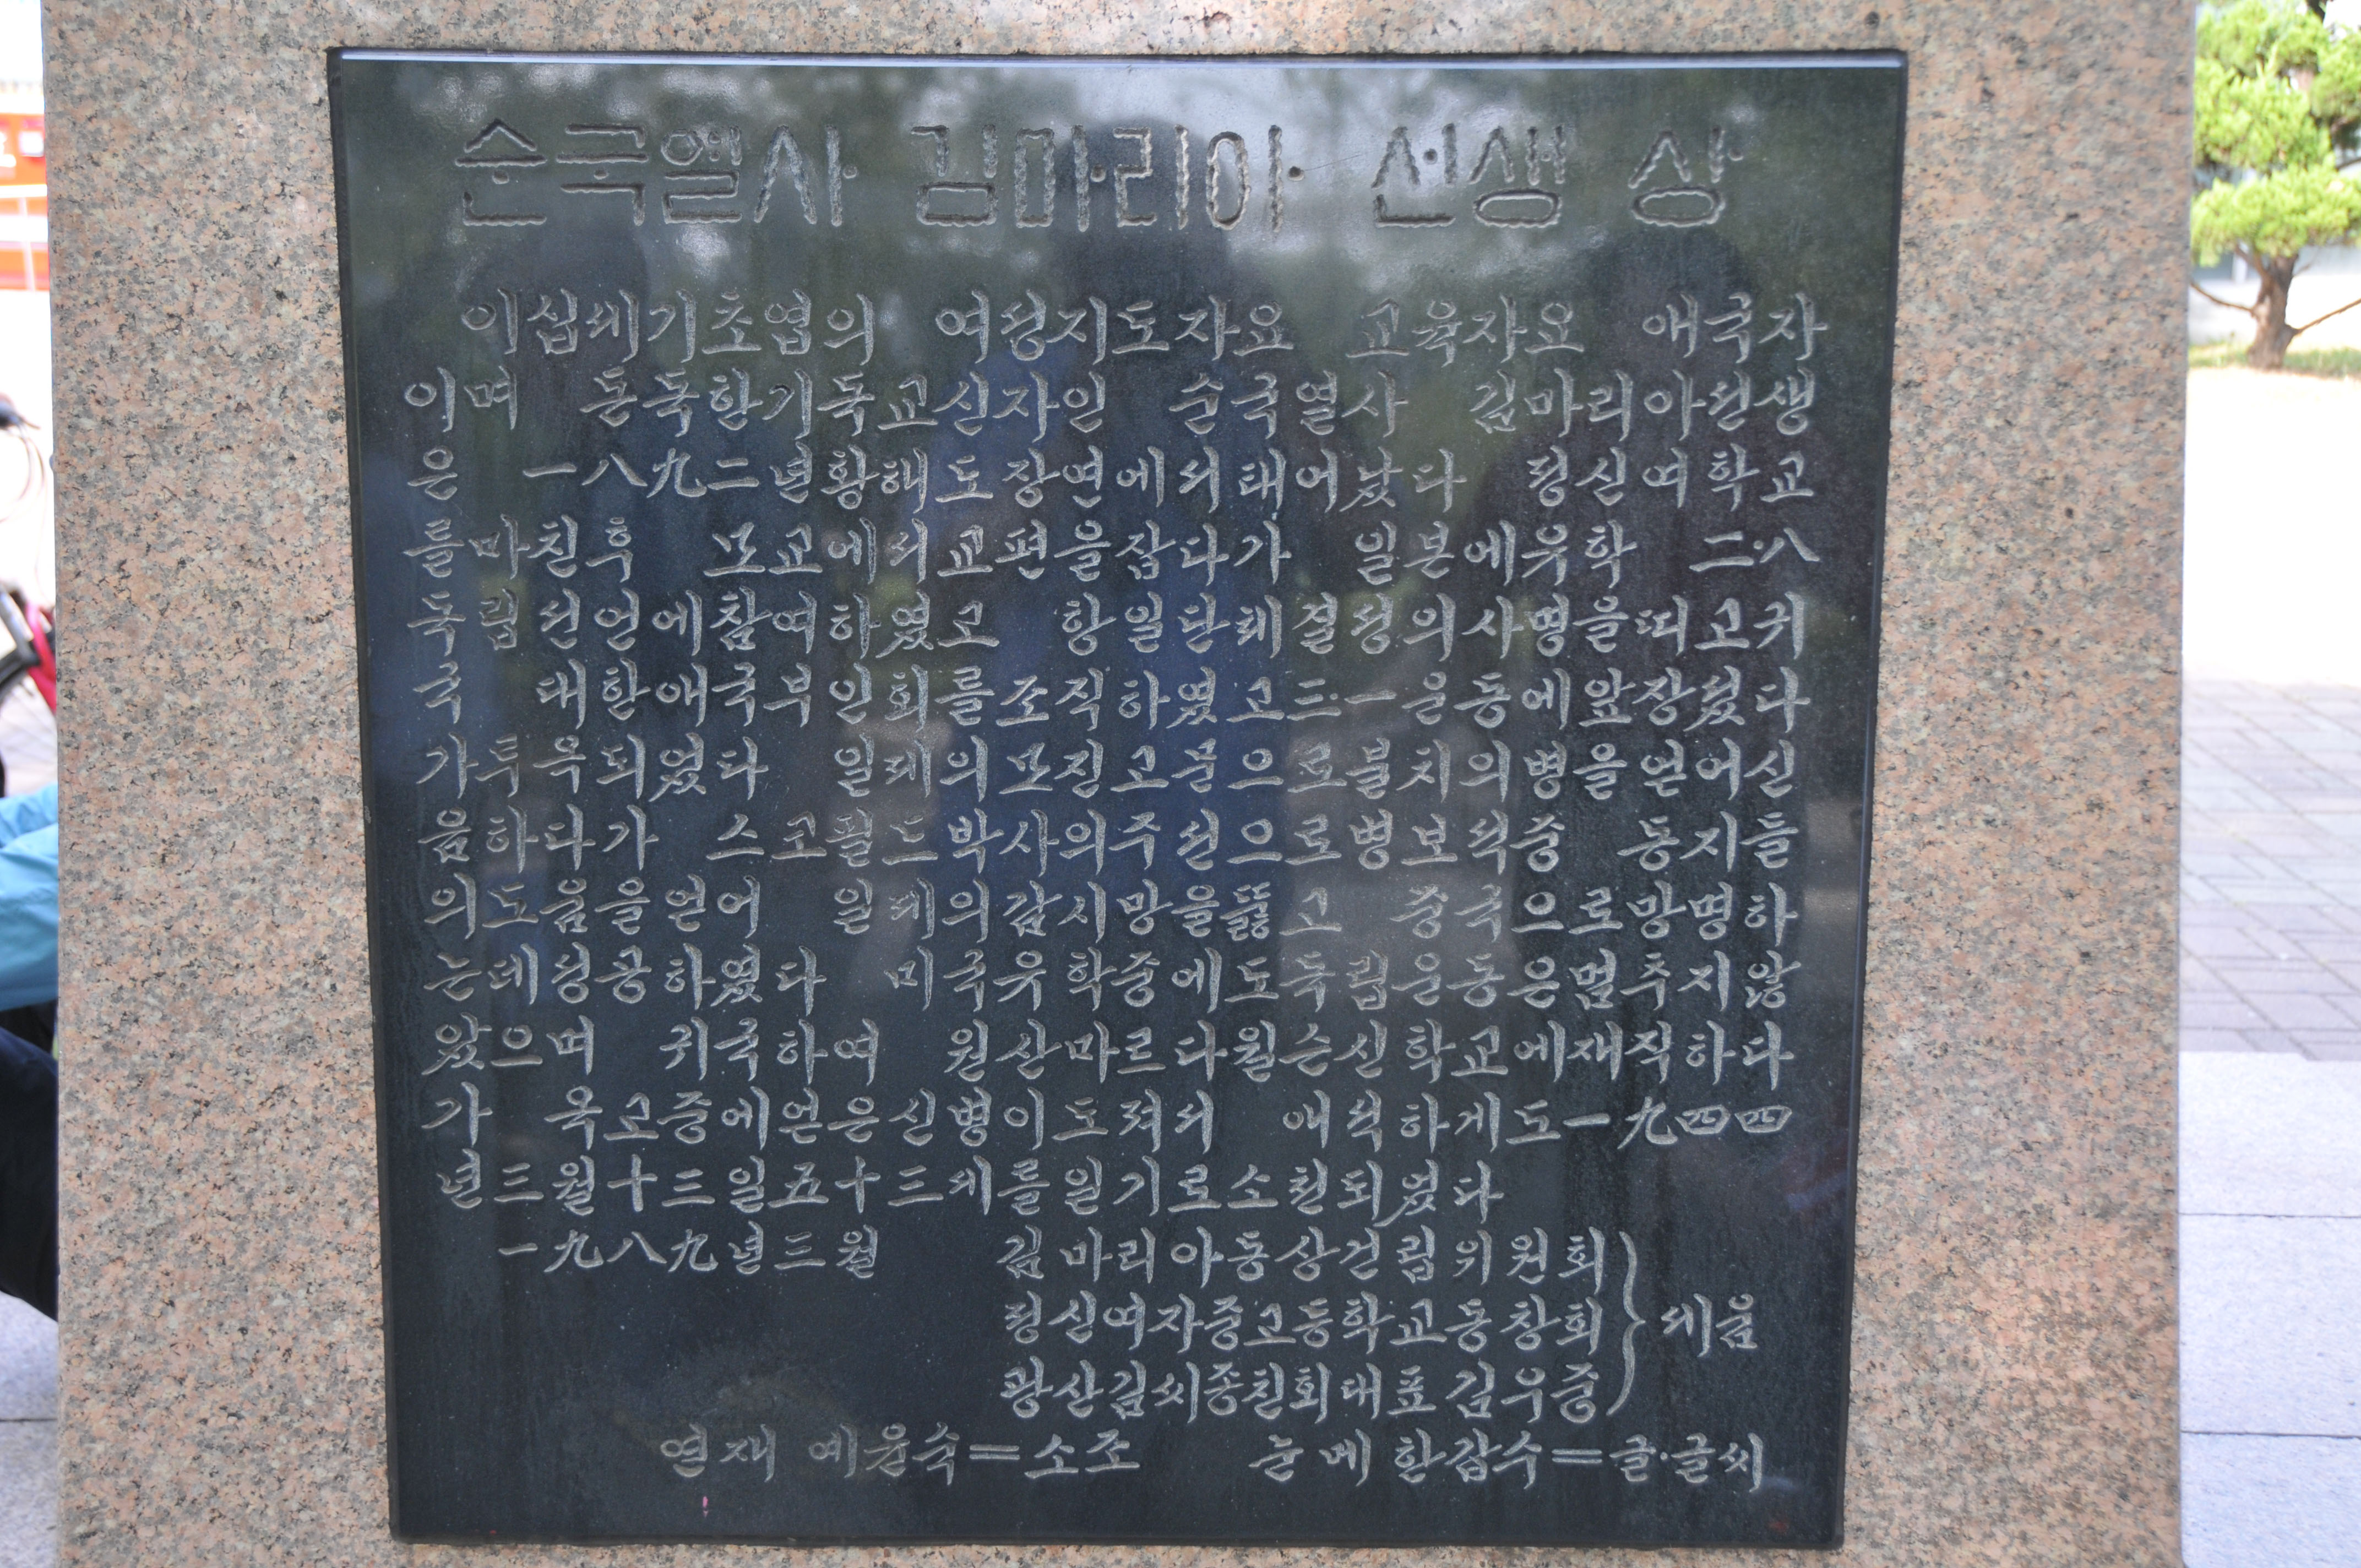 순국열사 김마리아 선생 상
이십세기초엽의 여성지도자요 교육자요 애국자
이며 돈독한기독교신자인 순국열사 김마리아선생
은 一八九二년황해도장연에서태어났다 정신여학교
를마친후 모교에서교편을잡다가 일본에유학 二·八
독립선언에참여하였고 항일단체결성의사명을띠고귀
국 대한애국부인회를조직하였고三·一운동에앞장섰다
가투옥되었다 일제의모진고문으로불치의병을얻어신
음하다가 스코필드박사의주선으로병보석중 동지들
의도움을얻어 일제의감시망을뚫고 중국으로망명하
는데성공하였다 미국유학중에도독립운동은멈추지않
았으며 귀국하여 원산마르다윌슨신학교에재직하다
가 옥고중에얻은신병이도져서 애석하게도一九四四
년三월十三일五十三세를일기로소천되었다
一九八九년三월 김마리아동상건립위원회
정신여자중고등학교동창회 세움
광산김씨종친회대표김우중
연재 예윤숙=소조 눈메 한갑수=글·글씨